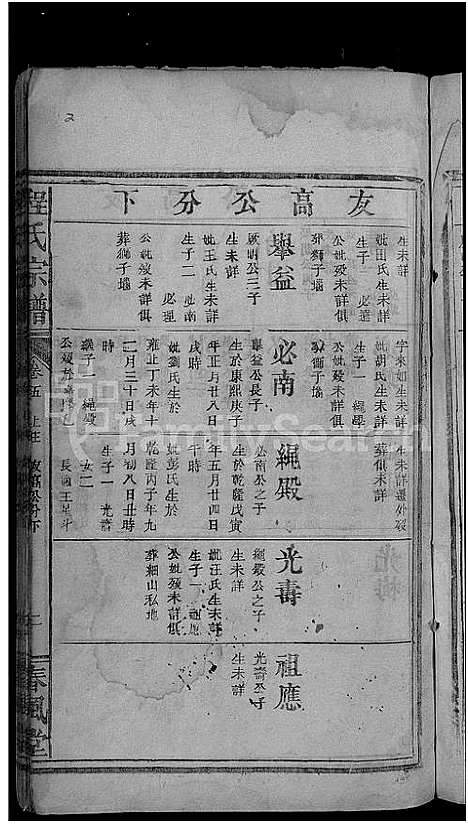 友高公分下
生未詳
妣田氏生未詳
生子一 必達
公妣歿未詳俱
葬獅子墖
舉益
啟明公三子
生未詳
妣王氏生未詳
生子二 必南
必理
公妣歿未詳俱
葬獅子墖
字來如生未詳
妣胡氏生未詳
生子一 繩學
公妣歿未詳俱
葬獅子墖
必南
舉益公長子
生於康熙庚子
年正月廿八日
戌時
妣劉氏生於
雍正丁未年十
二月三十日戌
時
繼子一 繩殿
生未詳遷外歿
葬俱未詳
繩殿
必南公之子
生於乾隆戊寅
年五月廿四日
午時
妣彭氏生於
乾隆丙子年九
月初八日丑時
生子一 光壽
女二
長適王
光壽
繩殿公之子
生未詳
妣汪氏生未詳
生子一 祖應
公妣歿未詳俱
葬細山私地
祖應
光壽公子
生未詳
程氏宗譜
卷五
春風堂
FamilySearch